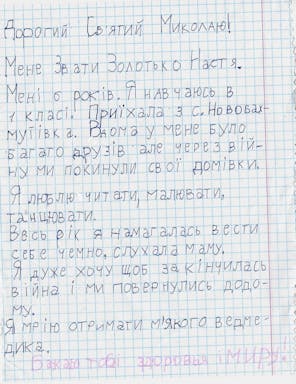 Дорогий Св'ятий Миколаю!
Мене Звати Золотько Настя.
Мені 6 років. Я навчаюсь в
1 класі. Приїхала з с. Новобах-
мутівка. Вдома у мене було
багато друзів але через вій-
ну ми покинули свої домівки.
Я люблю читати, малювати,
танцювати.
Весь рік я намагалась вести
себе чемно, слухала маму.
Я дуже хочу щоб закінчилась
війна і ми повернулись додо-
му.
Я мрію отримати м'якого ведме-
дика.
Бажаю тобі здоровья і миру!